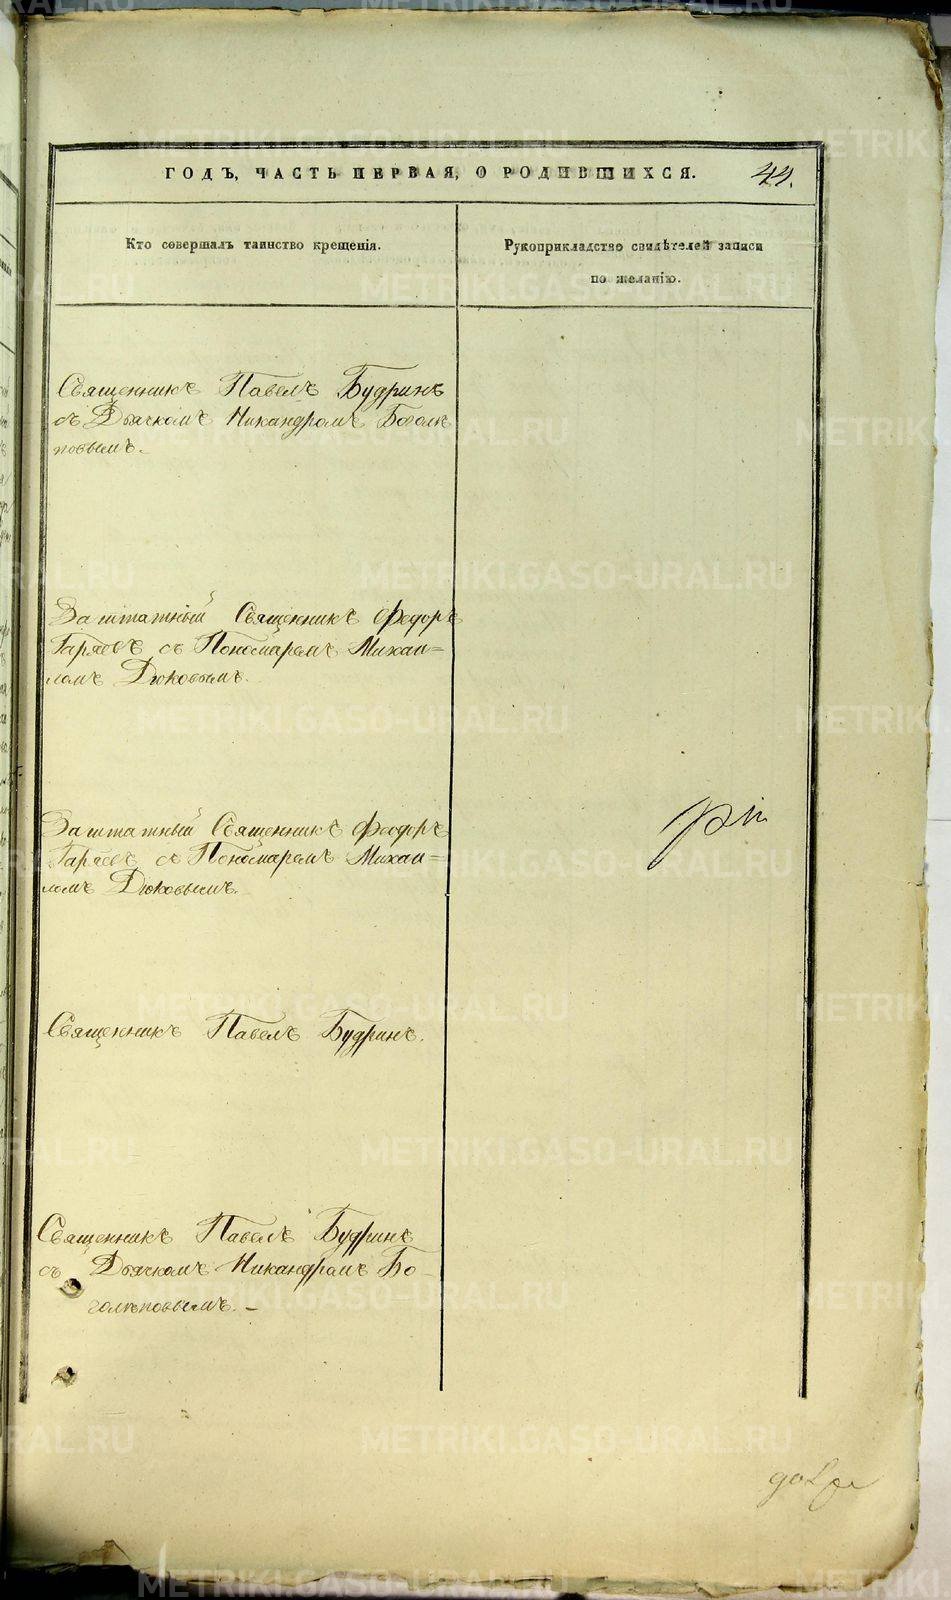 ГОДЪ, ЧАСТЬ ПЕРВАЯ, О РОДИВШИХСЯ. 44.
Кто совершалъ таинство крещенія.
Рукоприкладство свидѣтелей записи
по желанію.
Священникъ Павелъ Будринъ
съ Дьячкомъ Никандромъ Боголѣ
повымъ.
Заштатный Священникъ Федоръ
Гаряевъ съ Пономаремъ Михаи=
ломъ Дюковымъ.
Заштатный Священникъ Феодоръ
Гаряевъ съ Пономаремъ Михаи=
ломъ Дюковымъ.
Священникъ Павелъ Будринъ.
Священникъ Павелъ Будринъ
съ Дьячкомъ Никандромъ Бо-
голѣповымъ. –
METRIKI.GASO-URAL.RU